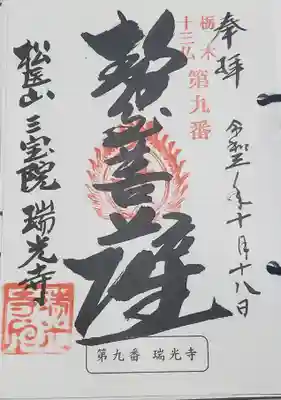 奉拝
令和三年十月十八日
栃木
十三仏
第九番
勢至菩薩
松崖山 三宝院 瑞光寺
瑞光
寺印
第九番 瑞光寺